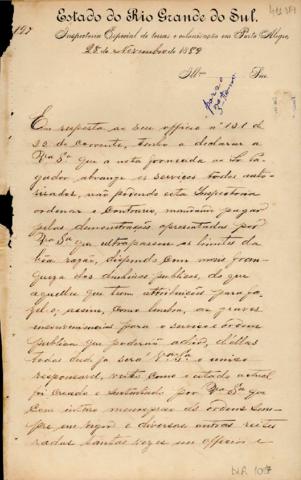 Estado do Rio Grande do Sul.
Inspectoria Especial de terras e colonisação em Porto Alegre
127
28 de Novembro de 1889
Illmo Snr.
Em resposta ao seu officio nº 131 de
22 do corrente, tenho a declarar a
Vª Sª que a nota fornecida ao Sr
gador abrange os serviços todos auto-
risados, não podendo esta Inspectoria
ordenar o contrario, mandar pagar
pelas demonstrações apresentadas por
Vª Sª que ultrapassem os limites da
bôa razão, dispondo com mais fran-
queza dos dinheiros publicos, do que
aquelle que tem attribuições para
fazel-o; assim, como lembra, as graves
inconveniencias para o serviço e ordem
publica que poderão advir, d'ellas
todas desde já será Vª Sª o unico
responsavel, visto como o estado actual
foi creado e sustentado por Vª Sª
com inteiro menospreso de ordens sem-
pre em vigor e diversas outras
radas tantas vezes em officios e